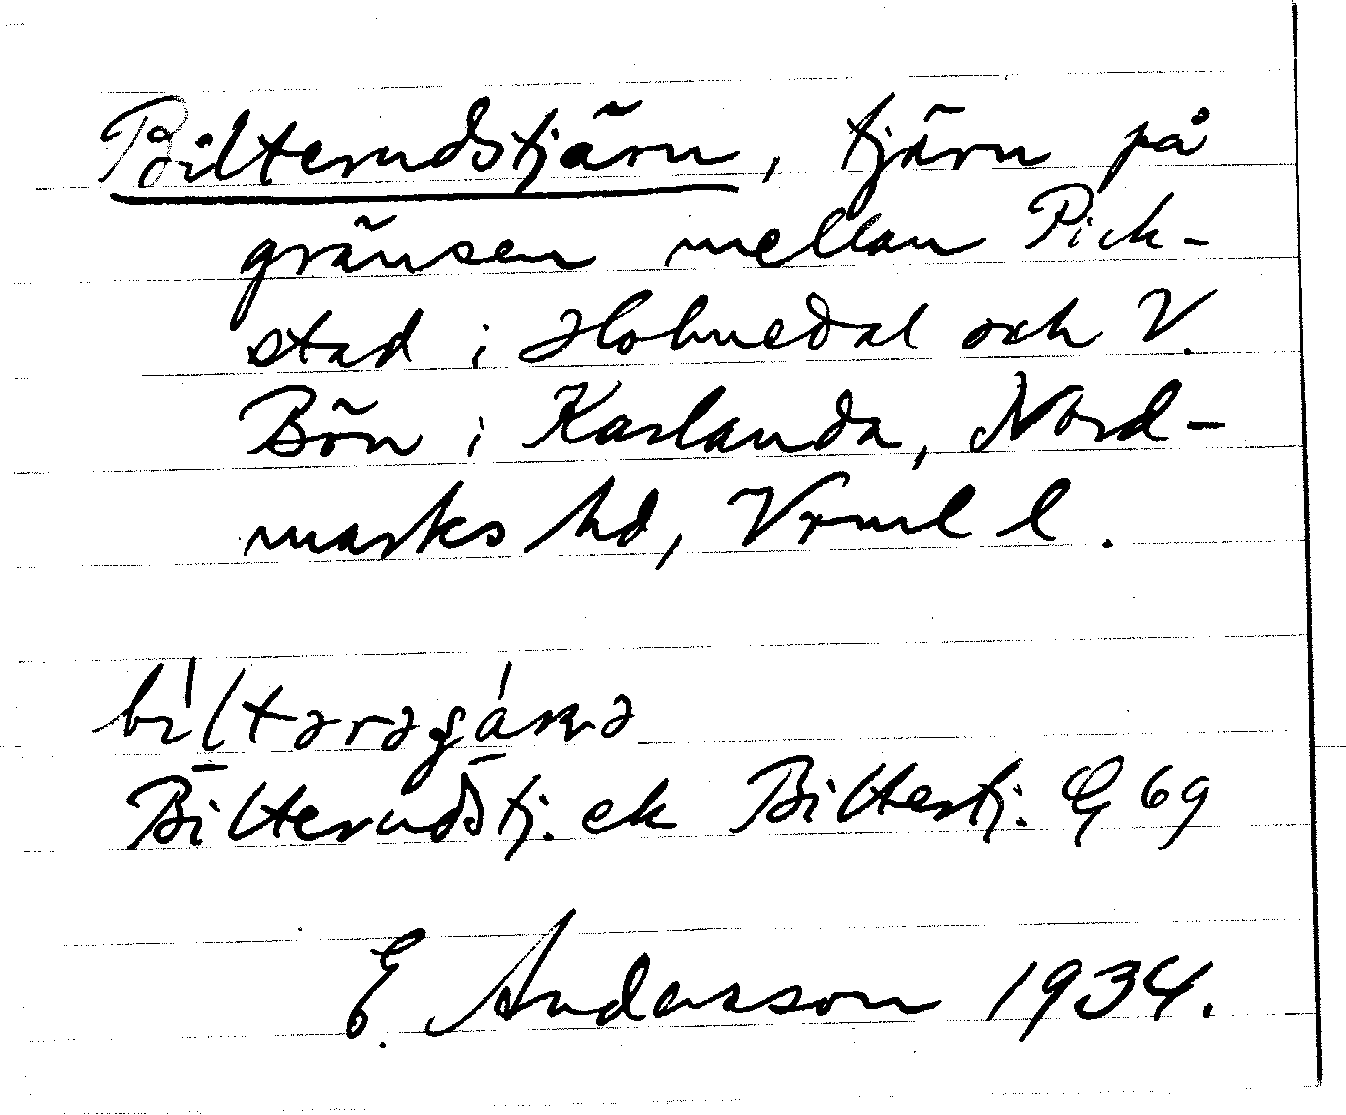 Bilterudstjärn, tjärn på
gränsen mellan Pick-
stad i Holmedal och V.
Bön i Karlanda, Nord-
marks hd, Vrml l.
Bilterudstj. ek Biltertj. G 69
E. Andersson 1934.